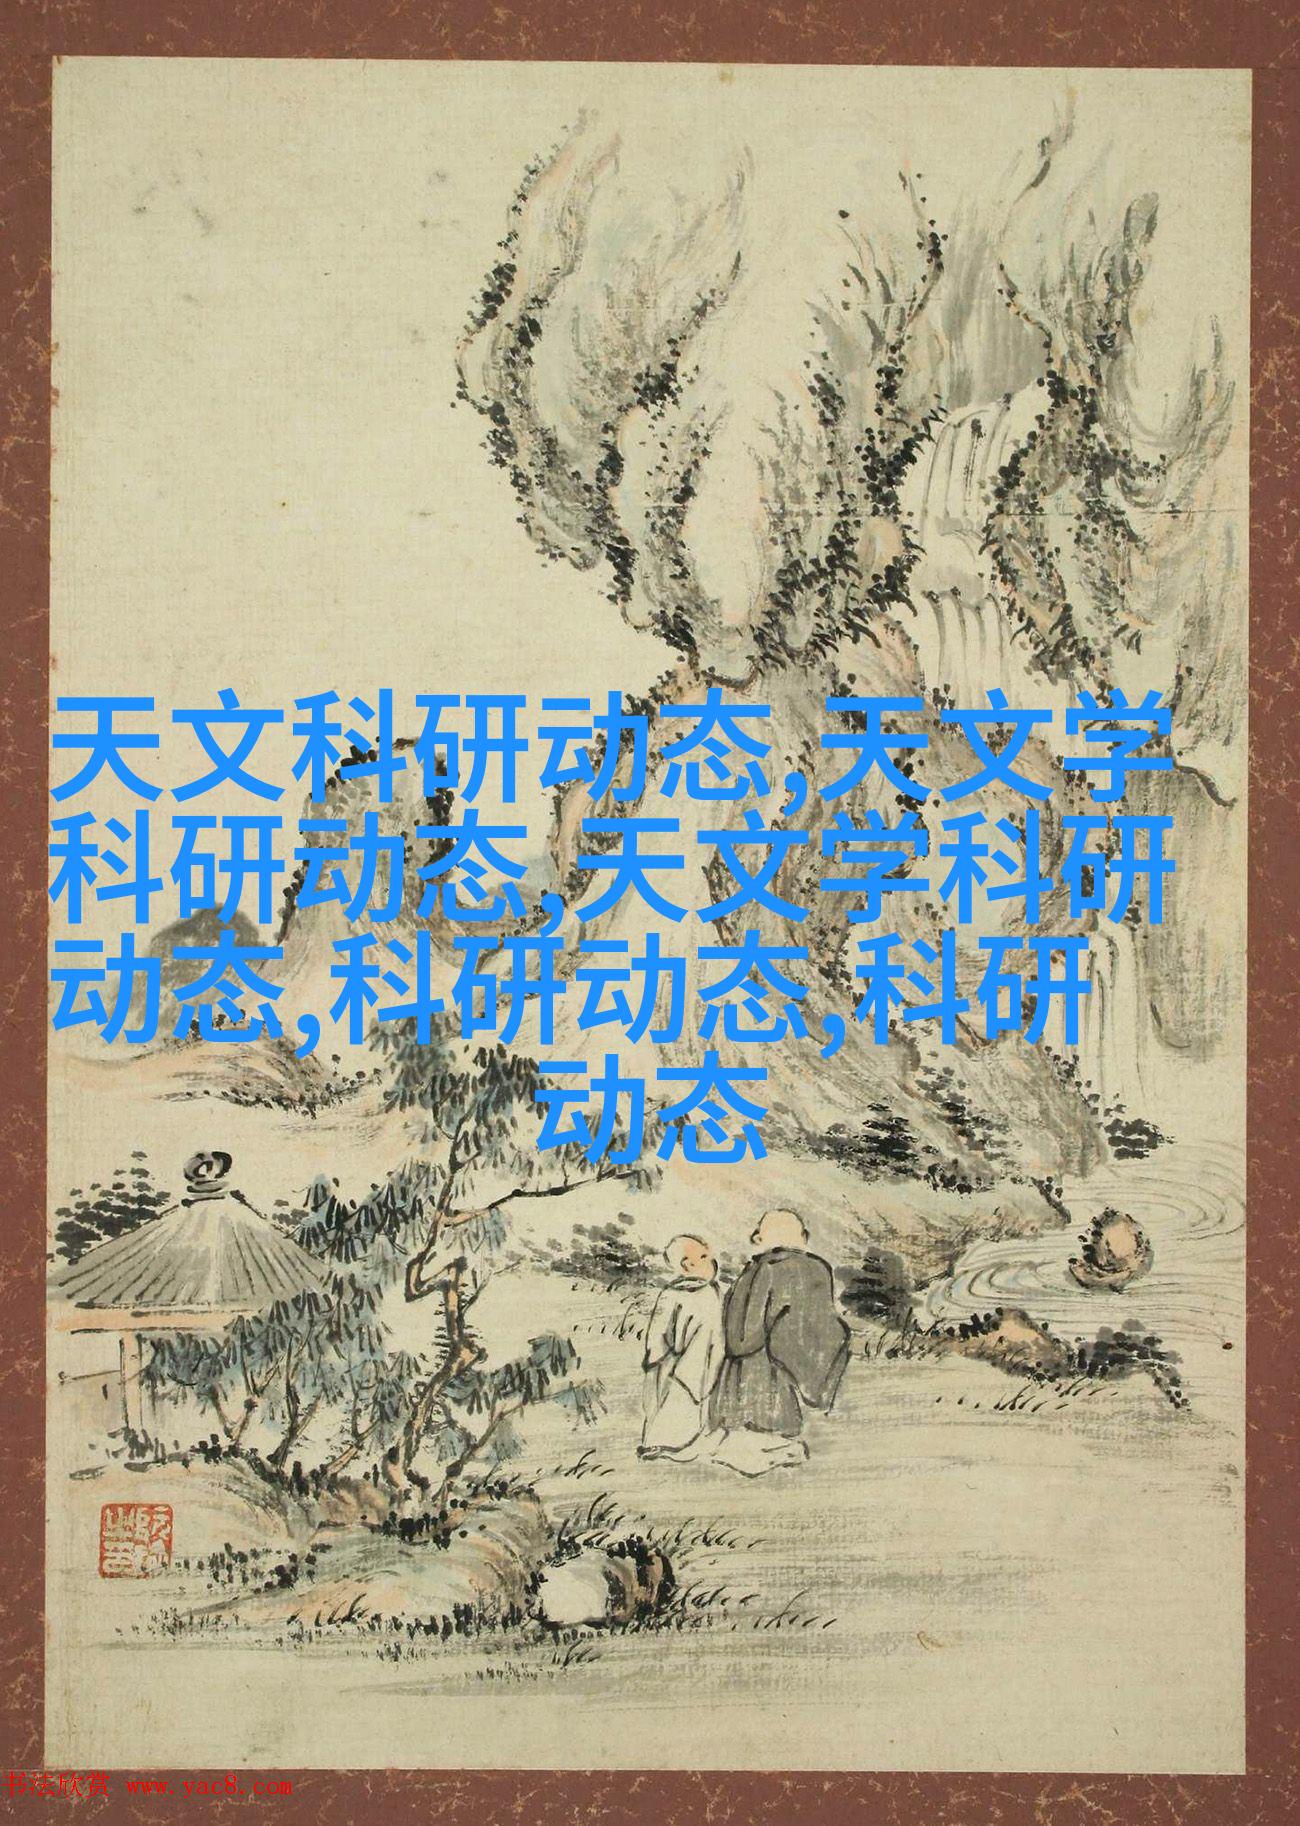 天文科研动态,天文学
科研动态,天文学科研
动态,科研动态,科研
动态
书法欣赏 www.yac8.com